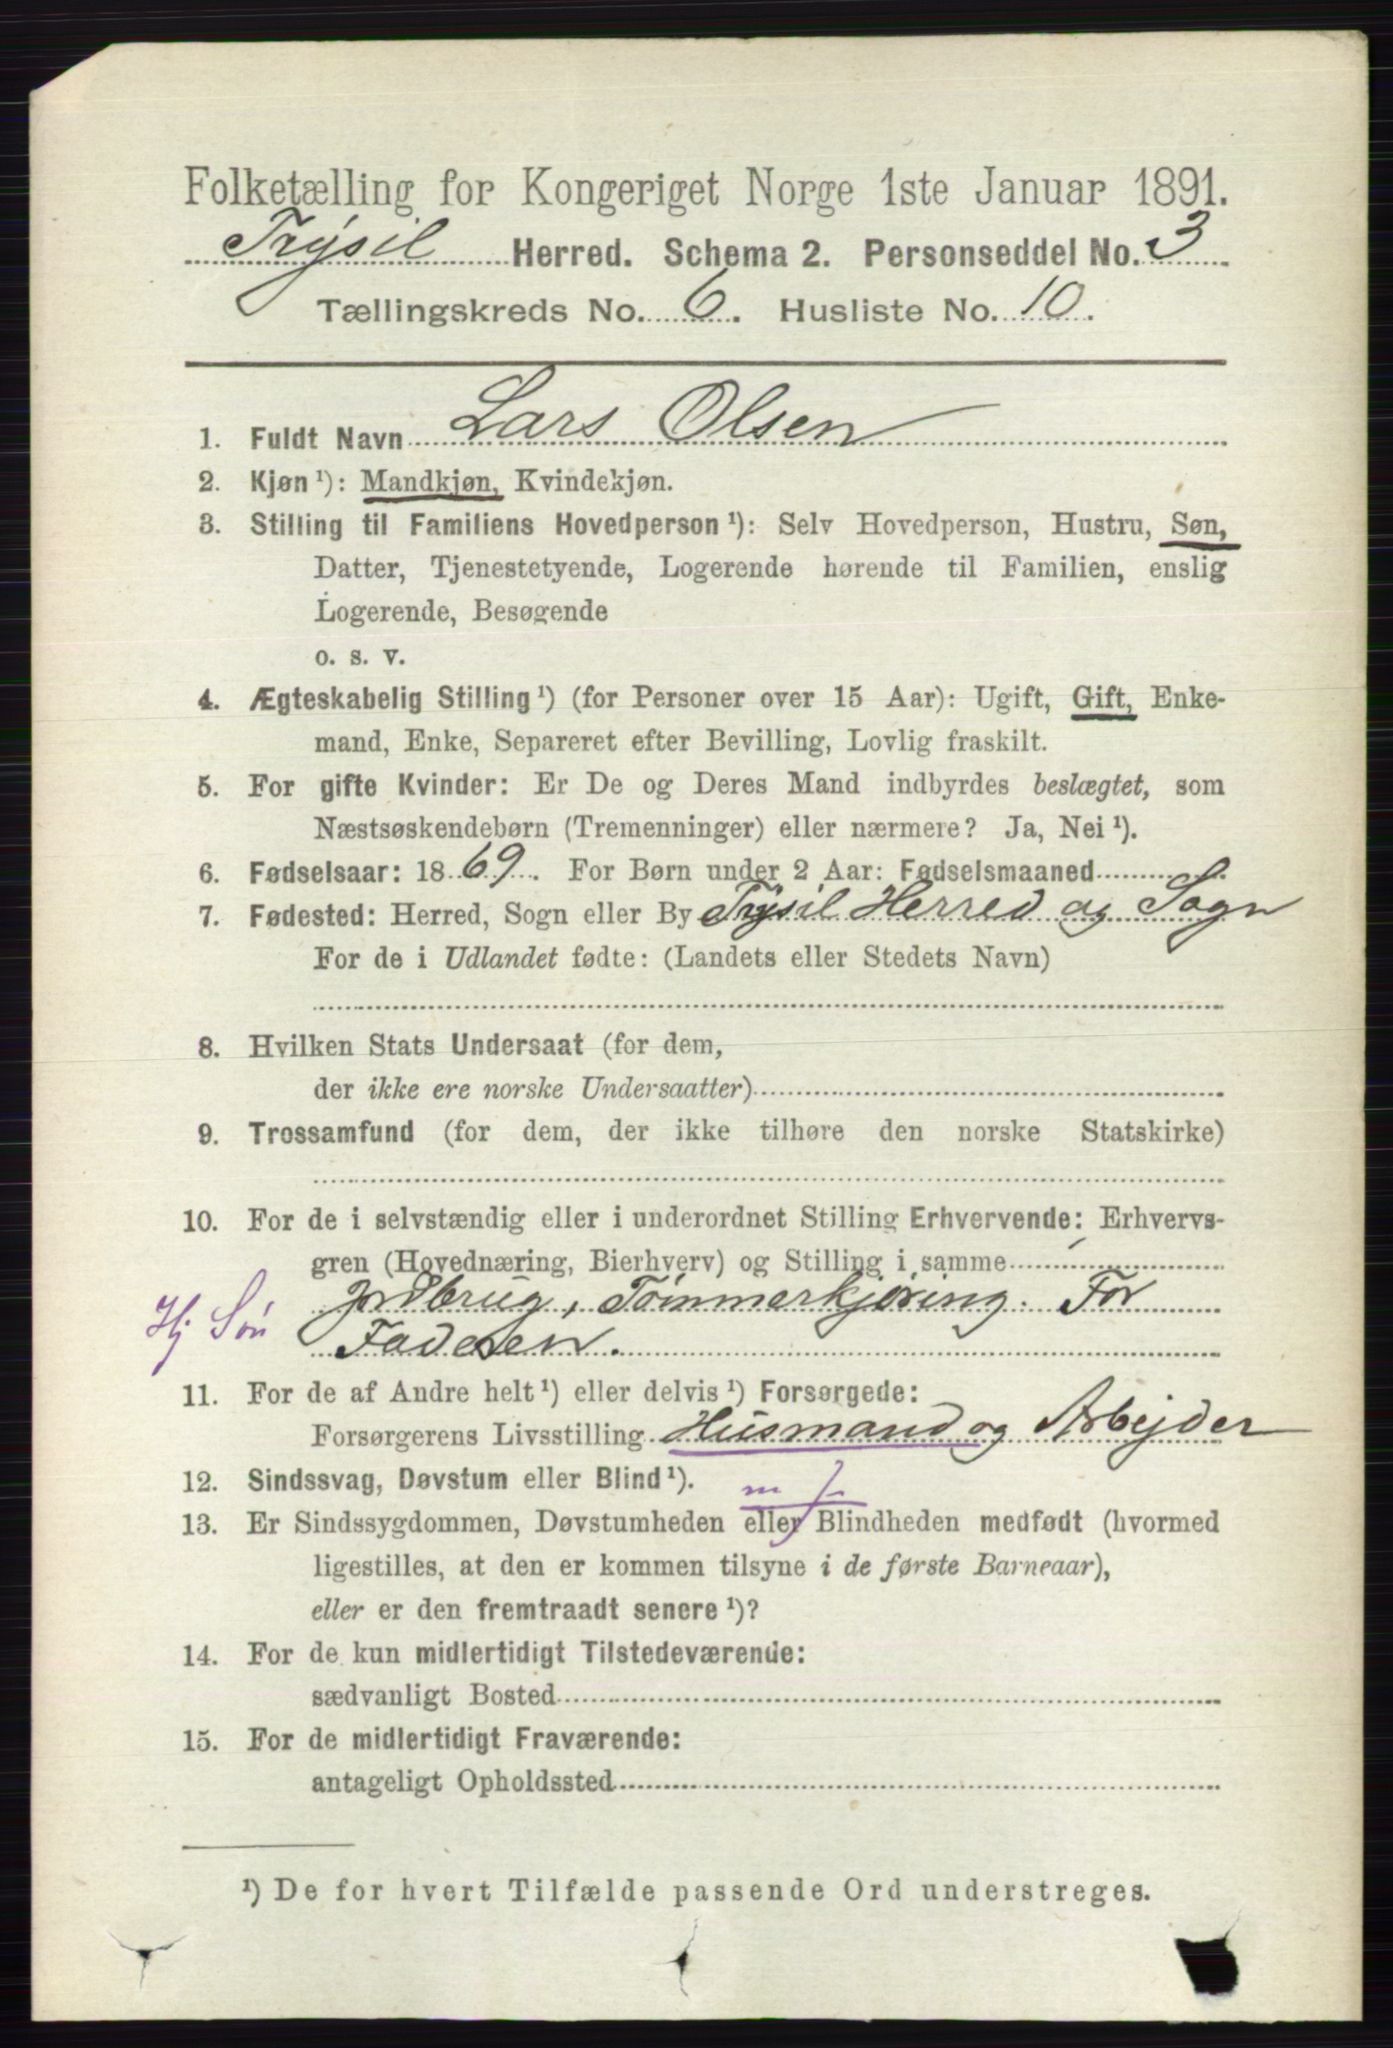 Folketælling for Kongeriget Norge 1ste Januar 1891.
Trysil Herred. Schema 2. Personseddel No. 3
Tællingskreds No. 6. Husliste No. 10.
1. Fuldt Navn Lars Olsen
2. Kjøn ¹): Mandkjøn, Kvindekjøn.
3. Stilling til Familiens Hovedperson ¹): Selv Hovedperson, Hustru, Søn,
Datter, Tjenestetyende, Logerende hørende til Familien, enslig
Logerende, Besøgende
o. s. v.
4. Ægteskabelig Stilling ¹) (for Personer over 15 Aar): Ugift, Gift, Enke-
mand, Enke, Separeret efter Bevilling, Lovlig fraskilt.
5. For gifte Kvinder: Er De og Deres Mand indbyrdes beslægtet, som
Næstsøskendebørn (Tremenninger) eller nærmere? Ja, Nei ¹).
6. Fødselsaar: 1869. For Børn under 2 Aar: Fødselsmaaned
7. Fødested: Herred, Sogn eller By Trysil Herred og Sogn
For de i Udlandet fødte: (Landets eller Stedets Navn)
8. Hvilken Stats Undersaat (for dem,
der ikke ere norske Undersaatter)
9. Trossamfund (for dem, der ikke tilhøre den norske Statskirke)
10. For de i selvstændig eller i underordnet Stilling Erhvervende: Erhvervs-
gren (Hovednæring, Bierhverv) og Stilling i samme
Hj Søn Jordbrug, Tömmerkjöring. For
Faderen.
11. For de af Andre helt ¹) eller delvis ¹) Forsørgede:
Forsørgerens Livsstilling Husmand og Arbejder
12. Sindssvag, Døvstum eller Blind ¹). m
13. Er Sindssygdommen, Døvstumheden eller Blindheden medfødt (hvormed
ligestilles, at den er kommen tilsyne i de første Barneaar),
eller er den fremtraadt senere ¹)?
14. For de kun midlertidigt Tilstedeværende:
sædvanligt Bosted
15. For de midlertidigt Fraværende:
antageligt Opholdssted
¹) De for hvert Tilfælde passende Ord understreges.